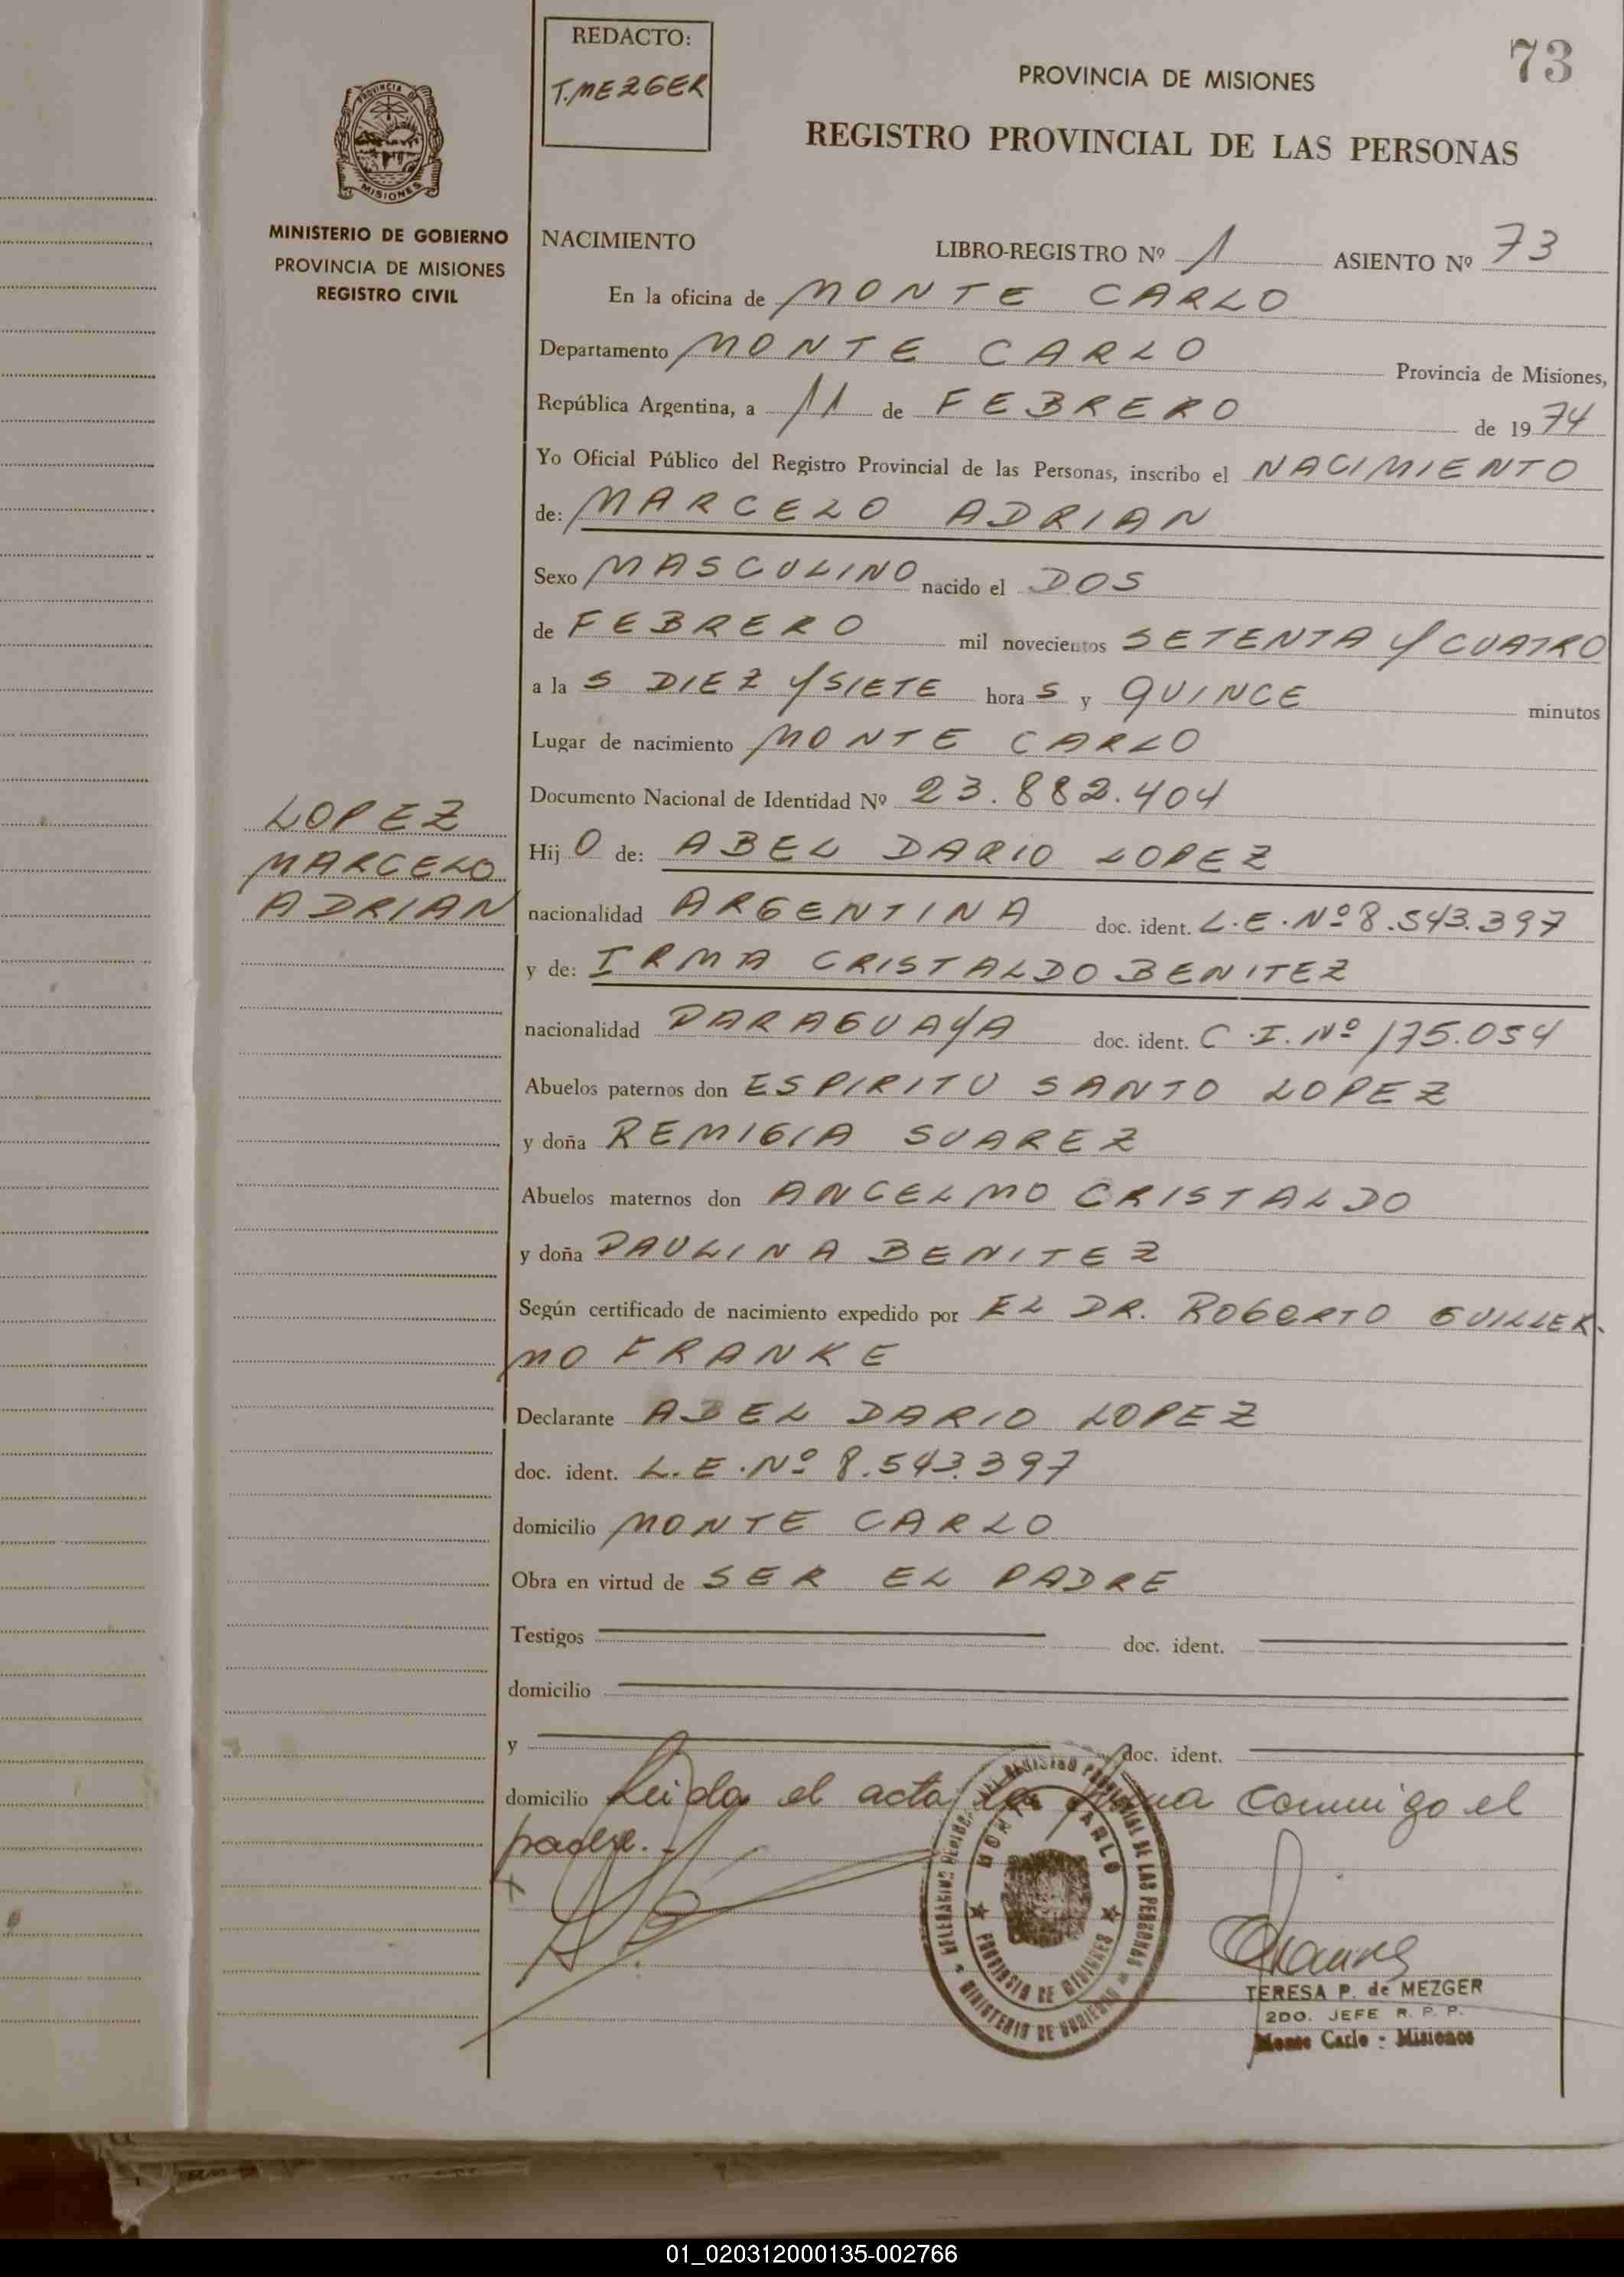 REDACTO:
T. MEZGER
73
PROVINCIA DE MISIONES
REGISTRO PROVINCIAL DE LAS PERSONAS
PROVINCIA DE
MISIONES
MINISTERIO DE GOBIERNO
PROVINCIA DE MISIONES
REGISTRO CIVIL
NACIMIENTO LIBRO-REGISTRO Nº 1 ASIENTO Nº 73
En la oficina de MONTE CARLO
Departamento MONTE CARLO Provincia de Misiones,
República Argentina, a 11 de FEBRERO de 1974
Yo Oficial Público del Registro Provincial de las Personas, inscribo el NACIMIENTO
de: MARCELO ADRIAN
Sexo MASCULINO nacido el DOS
de FEBRERO mil novecientos SETENTA Y CUATRO
a la S DIEZ Y SIETE hora S y QUINCE minutos
Lugar de nacimiento MONTE CARLO
Documento Nacional de Identidad Nº 23.882.404
LOPEZ
MARCELO
ADRIAN
Hij O de: ABEL DARIO LOPEZ
nacionalidad ARGENTINA doc. ident. L.E.Nº 8.543.397
y de: IRMA CRISTALDO BENITEZ
nacionalidad PARAGUAYA doc. ident. C.I. Nº 175.054
Abuelos paternos don ESPIRITU SANTO LOPEZ
y doña REMIGIA SUAREZ
Abuelos maternos don ANCELMO CRISTALDO
y doña PAULINA BENITEZ
Según certificado de nacimiento expedido por EL DR. ROBERTO GUILLER-
MO FRANKE
Declarante ABEL DARIO LOPEZ
doc. ident. L.E.Nº 8.543.397
domicilio MONTE CARLO
Obra en virtud de SER EL PADRE
Testigos doc. ident.
domicilio
y doc. ident.
domicilio Leida el acta la firma conmigo el
padre.-
MONTE CARLO
PROVINCIA DE MISIONES
MINISTERIO DE GOBIERNO
TERESA P. de MEZGER
2DO. JEFE R. P. P.
Monte Carlo - Misiones
01_020312000135-002766